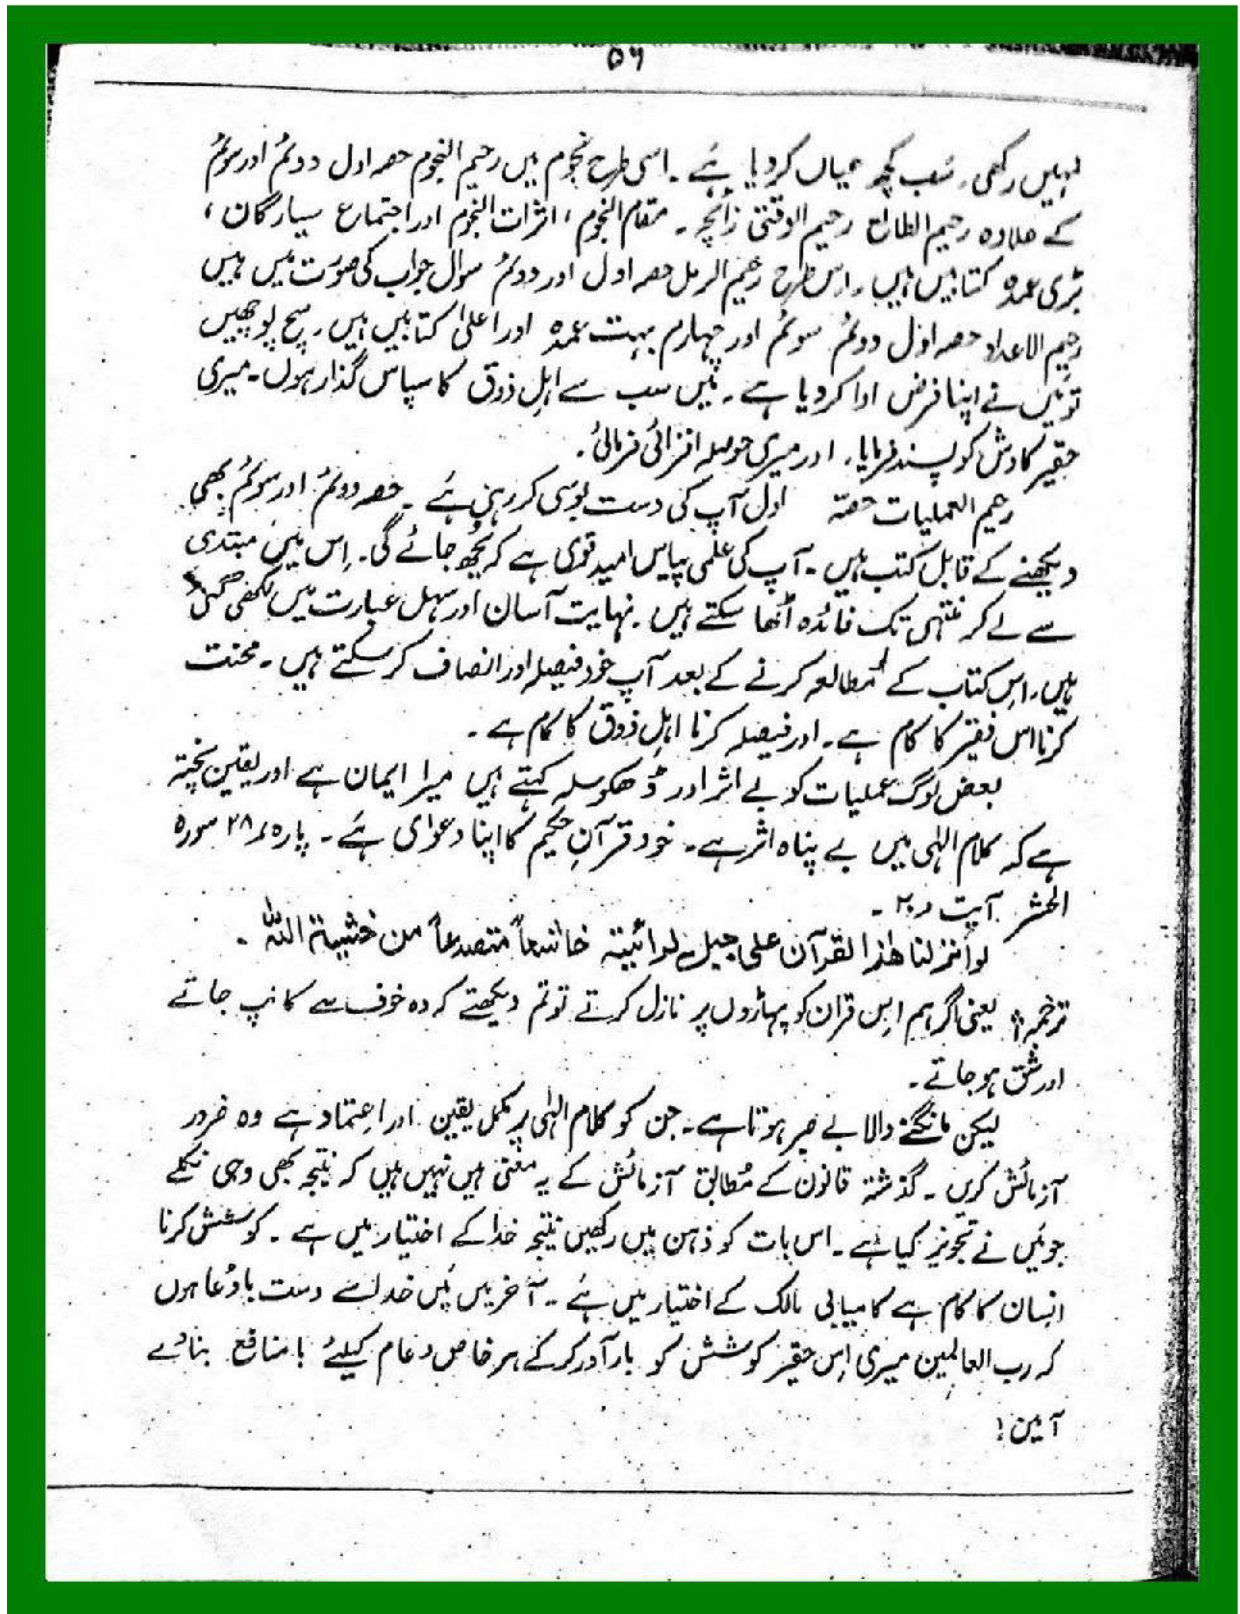 ۵۶
نہیں رکھی۔ سَب کچھ عیاں کردیا ہَے۔ اسی طرح نجوم میں رحیم النجوم حصہ اول دوئمُ اور سوئمُ
کے علاوہ رحیم الطالع رحیم الوقتی زائچہ۔ مقام النجوم، اثرات النجوم اور اجتماع سیارگان،
بڑی عمدہ کتابیں ہیں۔ اِس طرح رحیم الرمل حصہ اول اور دوئمُ سوال جواب کی صوُرت میں ہیں
رحیم الاعداد حصہ اوّل دوئمُ سوئمُ اور چہارم بہت عمدہ اور اعلیٰ کتابیں ہیں۔ سچ پوچھیں
تو مَیں نے اپنا فرض ادا کردیا ہے۔ مَیں سب سے اہلِ ذوق کا سپاس گذار ہوں۔ میری
حقیر کاوش کو پسند فرمایا۔ اور میری حوصلہ افزائی فرمائی۔
رحیم العملیات حصّہ اول آپ کی دست بوسی کر رہی ہَے۔ حصہ دوئمُ اور سوئمُ بھی
دیکھنے کے قابل کتب ہیں۔ آپ کی علمی پیاس امید قوی ہے کہ بُجھ جائے گی۔ اِس میں مبتدی
سے لے کر منتہی تک فائدہ اُٹھا سکتے ہیں۔ نہایت آسان اور سہل عبارت میں لکھی گئی
ہیں۔ اِس کتاب کے مُطالعہ کرنے کے بعد آپ خود فیصلہ اور انصاف کرسکتے ہیں۔ محنت
کرنا اس فقیر کا کام ہے۔ اور فیصلہ کرنا اہلِ ذوق کا کام ہے۔
بعض لوگ عملیات کو بے اثر اور ڈھکوسلہ کہتے ہیں میرا ایمان ہے اور یقین پختہ
ہے کہ کلام الہٰی میں بے پناہ اثر ہے۔ خود قرآنِ حکیم کا اپنا دعوٰی ہَے۔ پارہ ۲۸ سورہ
الحشر آیت ۲۰۔
لو أنزلنا ھٰذا القرآن علی جبل لرائیتہ خاشعاً متصدعاً من خشیۃ اللہ۔
ترجمہ: یعنی اگر ہم اِس قران کو پہاڑوں پر نازل کرتے تو تم دیکھتے کہ وہ خوف سے کانپ جاتے
اور شق ہو جاتے۔
لیکن مانگنے والا بے صبر ہوتا ہے۔ جن کو کلام الہٰی پر مکمل یقین اور اعتماد ہے وہ ضرور
آزمائش کریں۔ گذشتہ قانون کے مُطابق آزمائش کے یہ معنی ہیں نہیں ہیں کہ نتیجہ بھی وہی نکلے
جو مَیں نے تجویز کیا ہے۔ اس بات کو ذہن میں رکھیں نتیجہ خدا کے اختیار میں ہے۔ کوشش کرنا
انسان کا کام ہے کامیابی مالک کے اختیار میں ہَے۔ آخر میں مَیں خدا سے دست بادُعا ہوں
کہ رب العالمین میری اِس حقیر کوشش کو بارآور کرکے ہر خاص و عام کیلئے بامنافع بنائے
آمین!